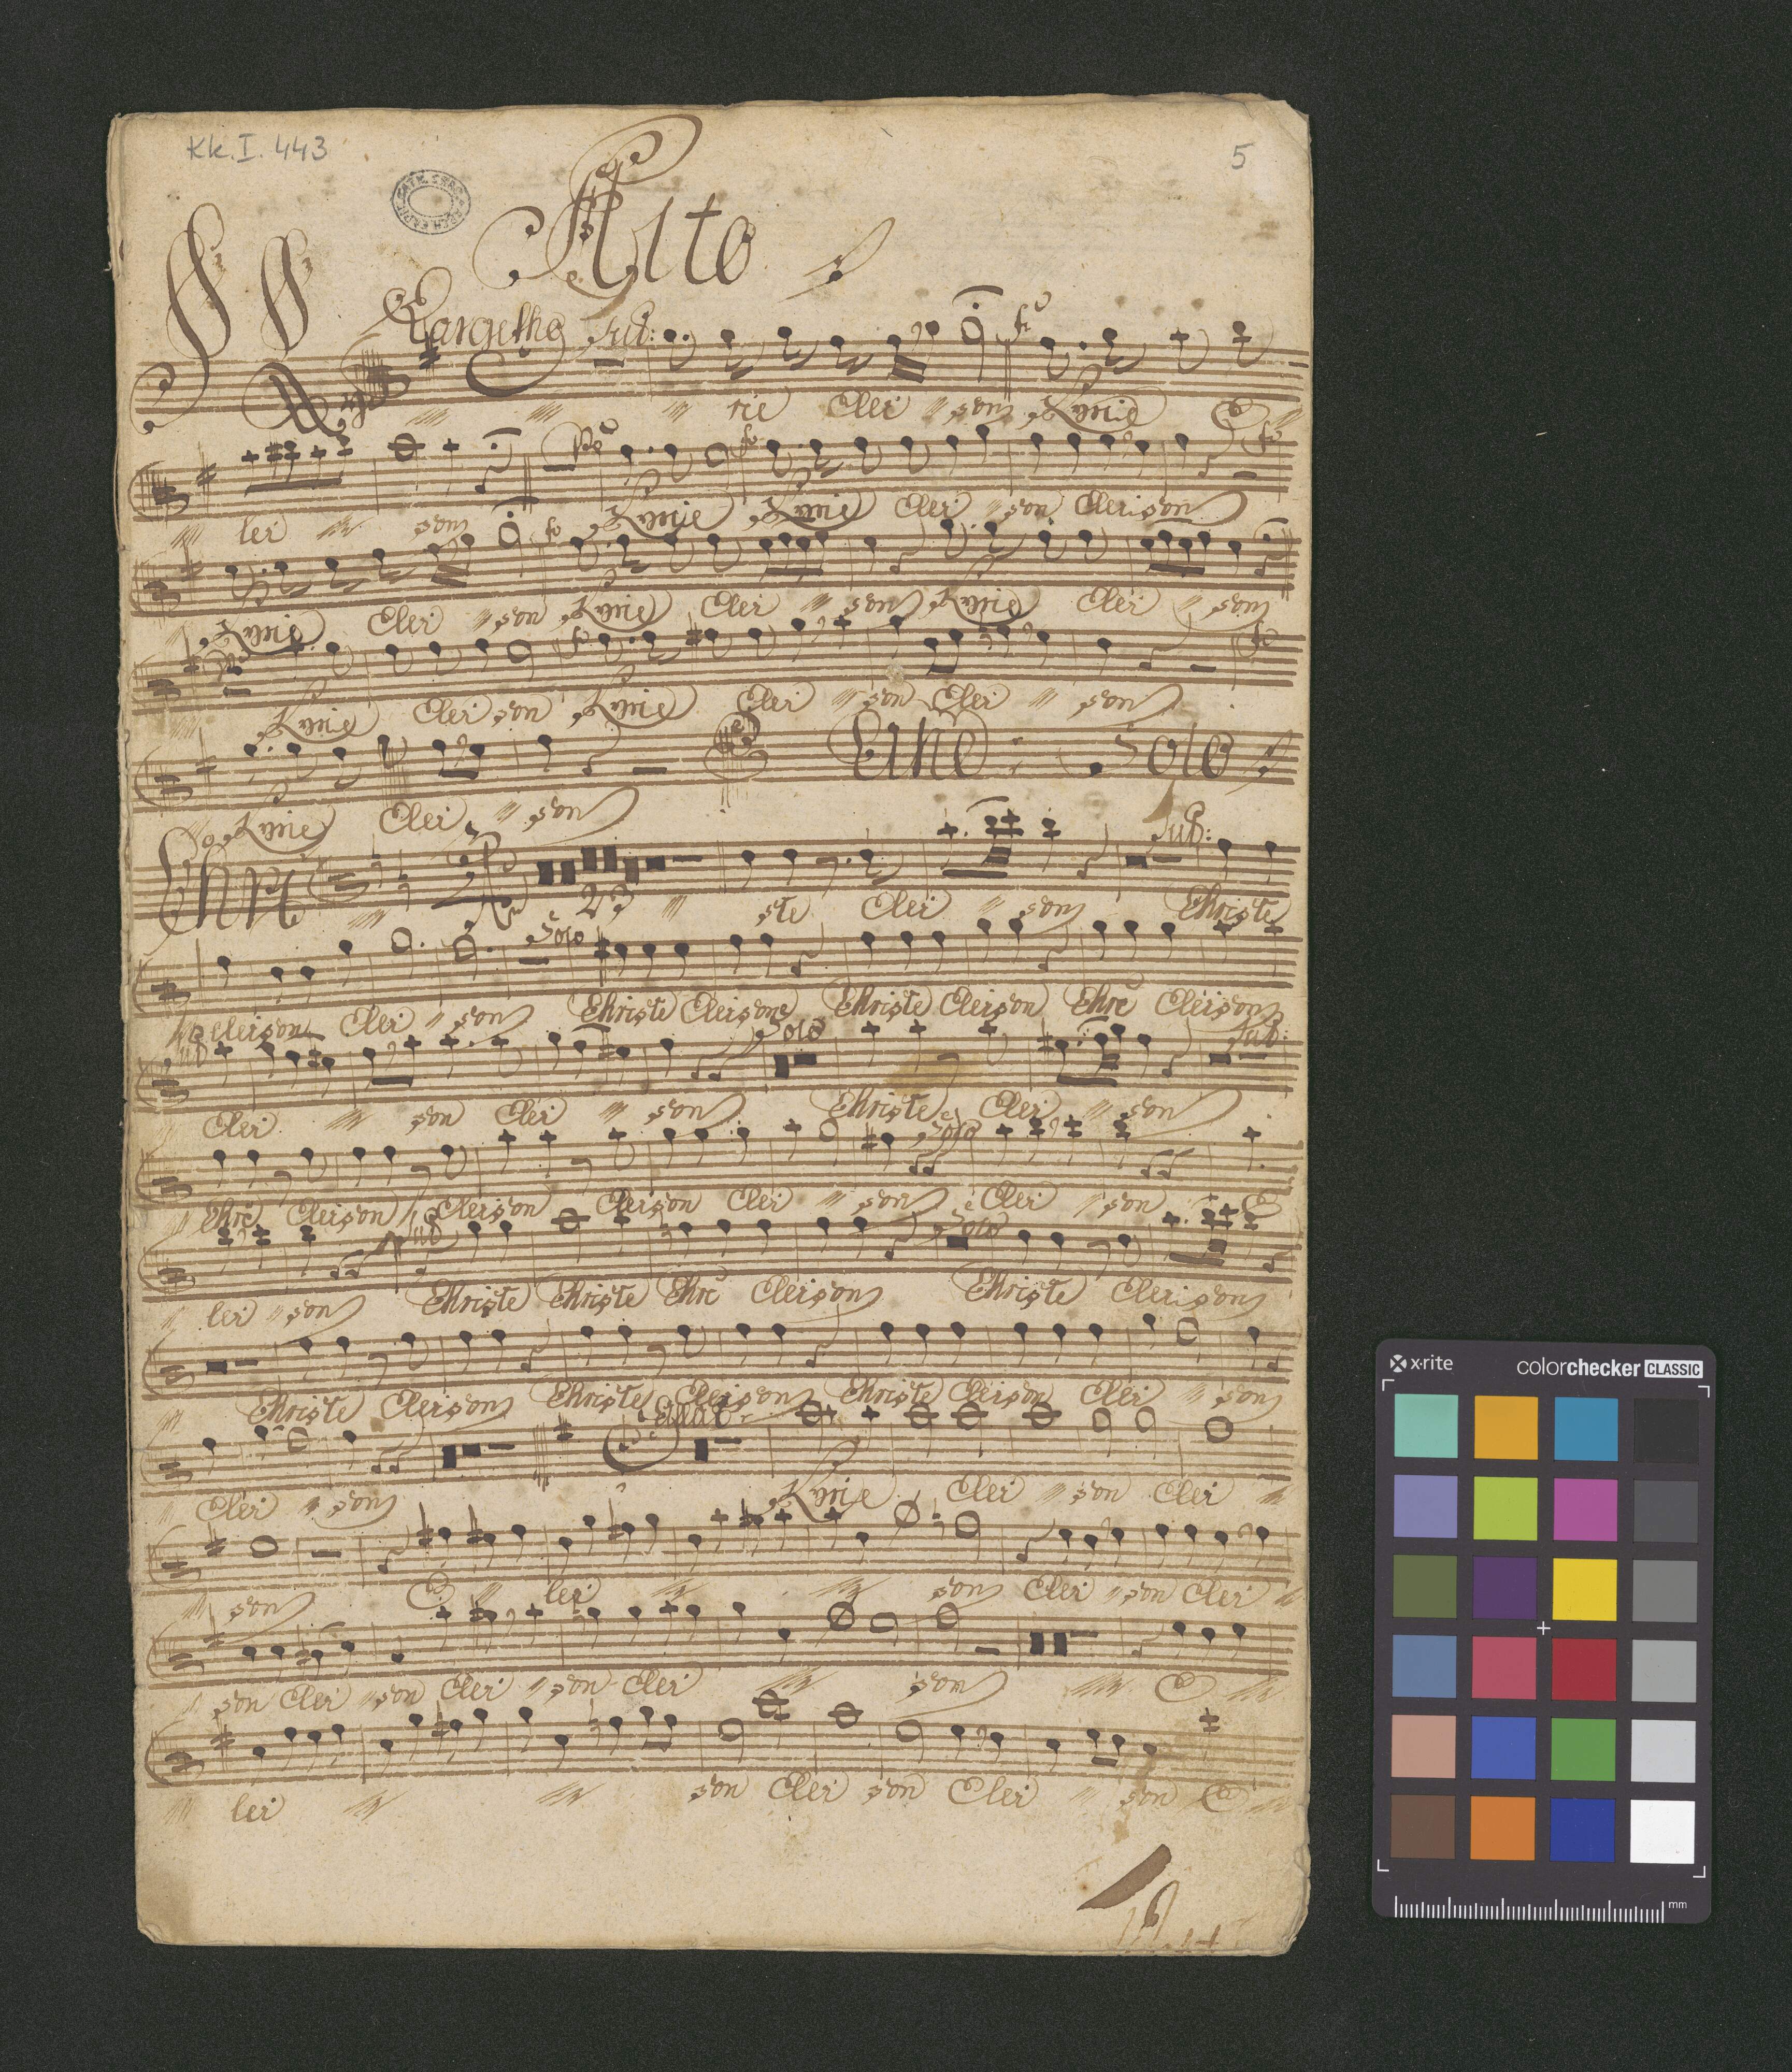 Kk.I.443
5
Alto
Larghetto
rie Elei son Kyrie E
lei son Kyrie Kyrie Elei son Eleison
Kyrie Elei son Kyrie Elei son Kyrie Elei son
Kyrie Elei son Kyrie Elei son Elei son
Solo
Kyrie Elei son
23
ste Elei son Christe
Solo
eleison Elei son Christe Eleison Christe Eleison Chrẽ Eleison
Solo
Elei son Elei son Christe Elei son
Solo
Chrẽ Eleison Eleison Eleison Elei son Elei son E
Solo
lei son Christe Christe Chrẽ Eleison Christe Eleison
Christe Eleison Christe Eleison Christe Eleison Elei son
Elei son Kyrie Elei son Elei
son E lei son Elei son Elei
son Elei son Elei son Elei son E
lei son Elei son Elei son E
x·rite
colorchecker CLASSIC
mm